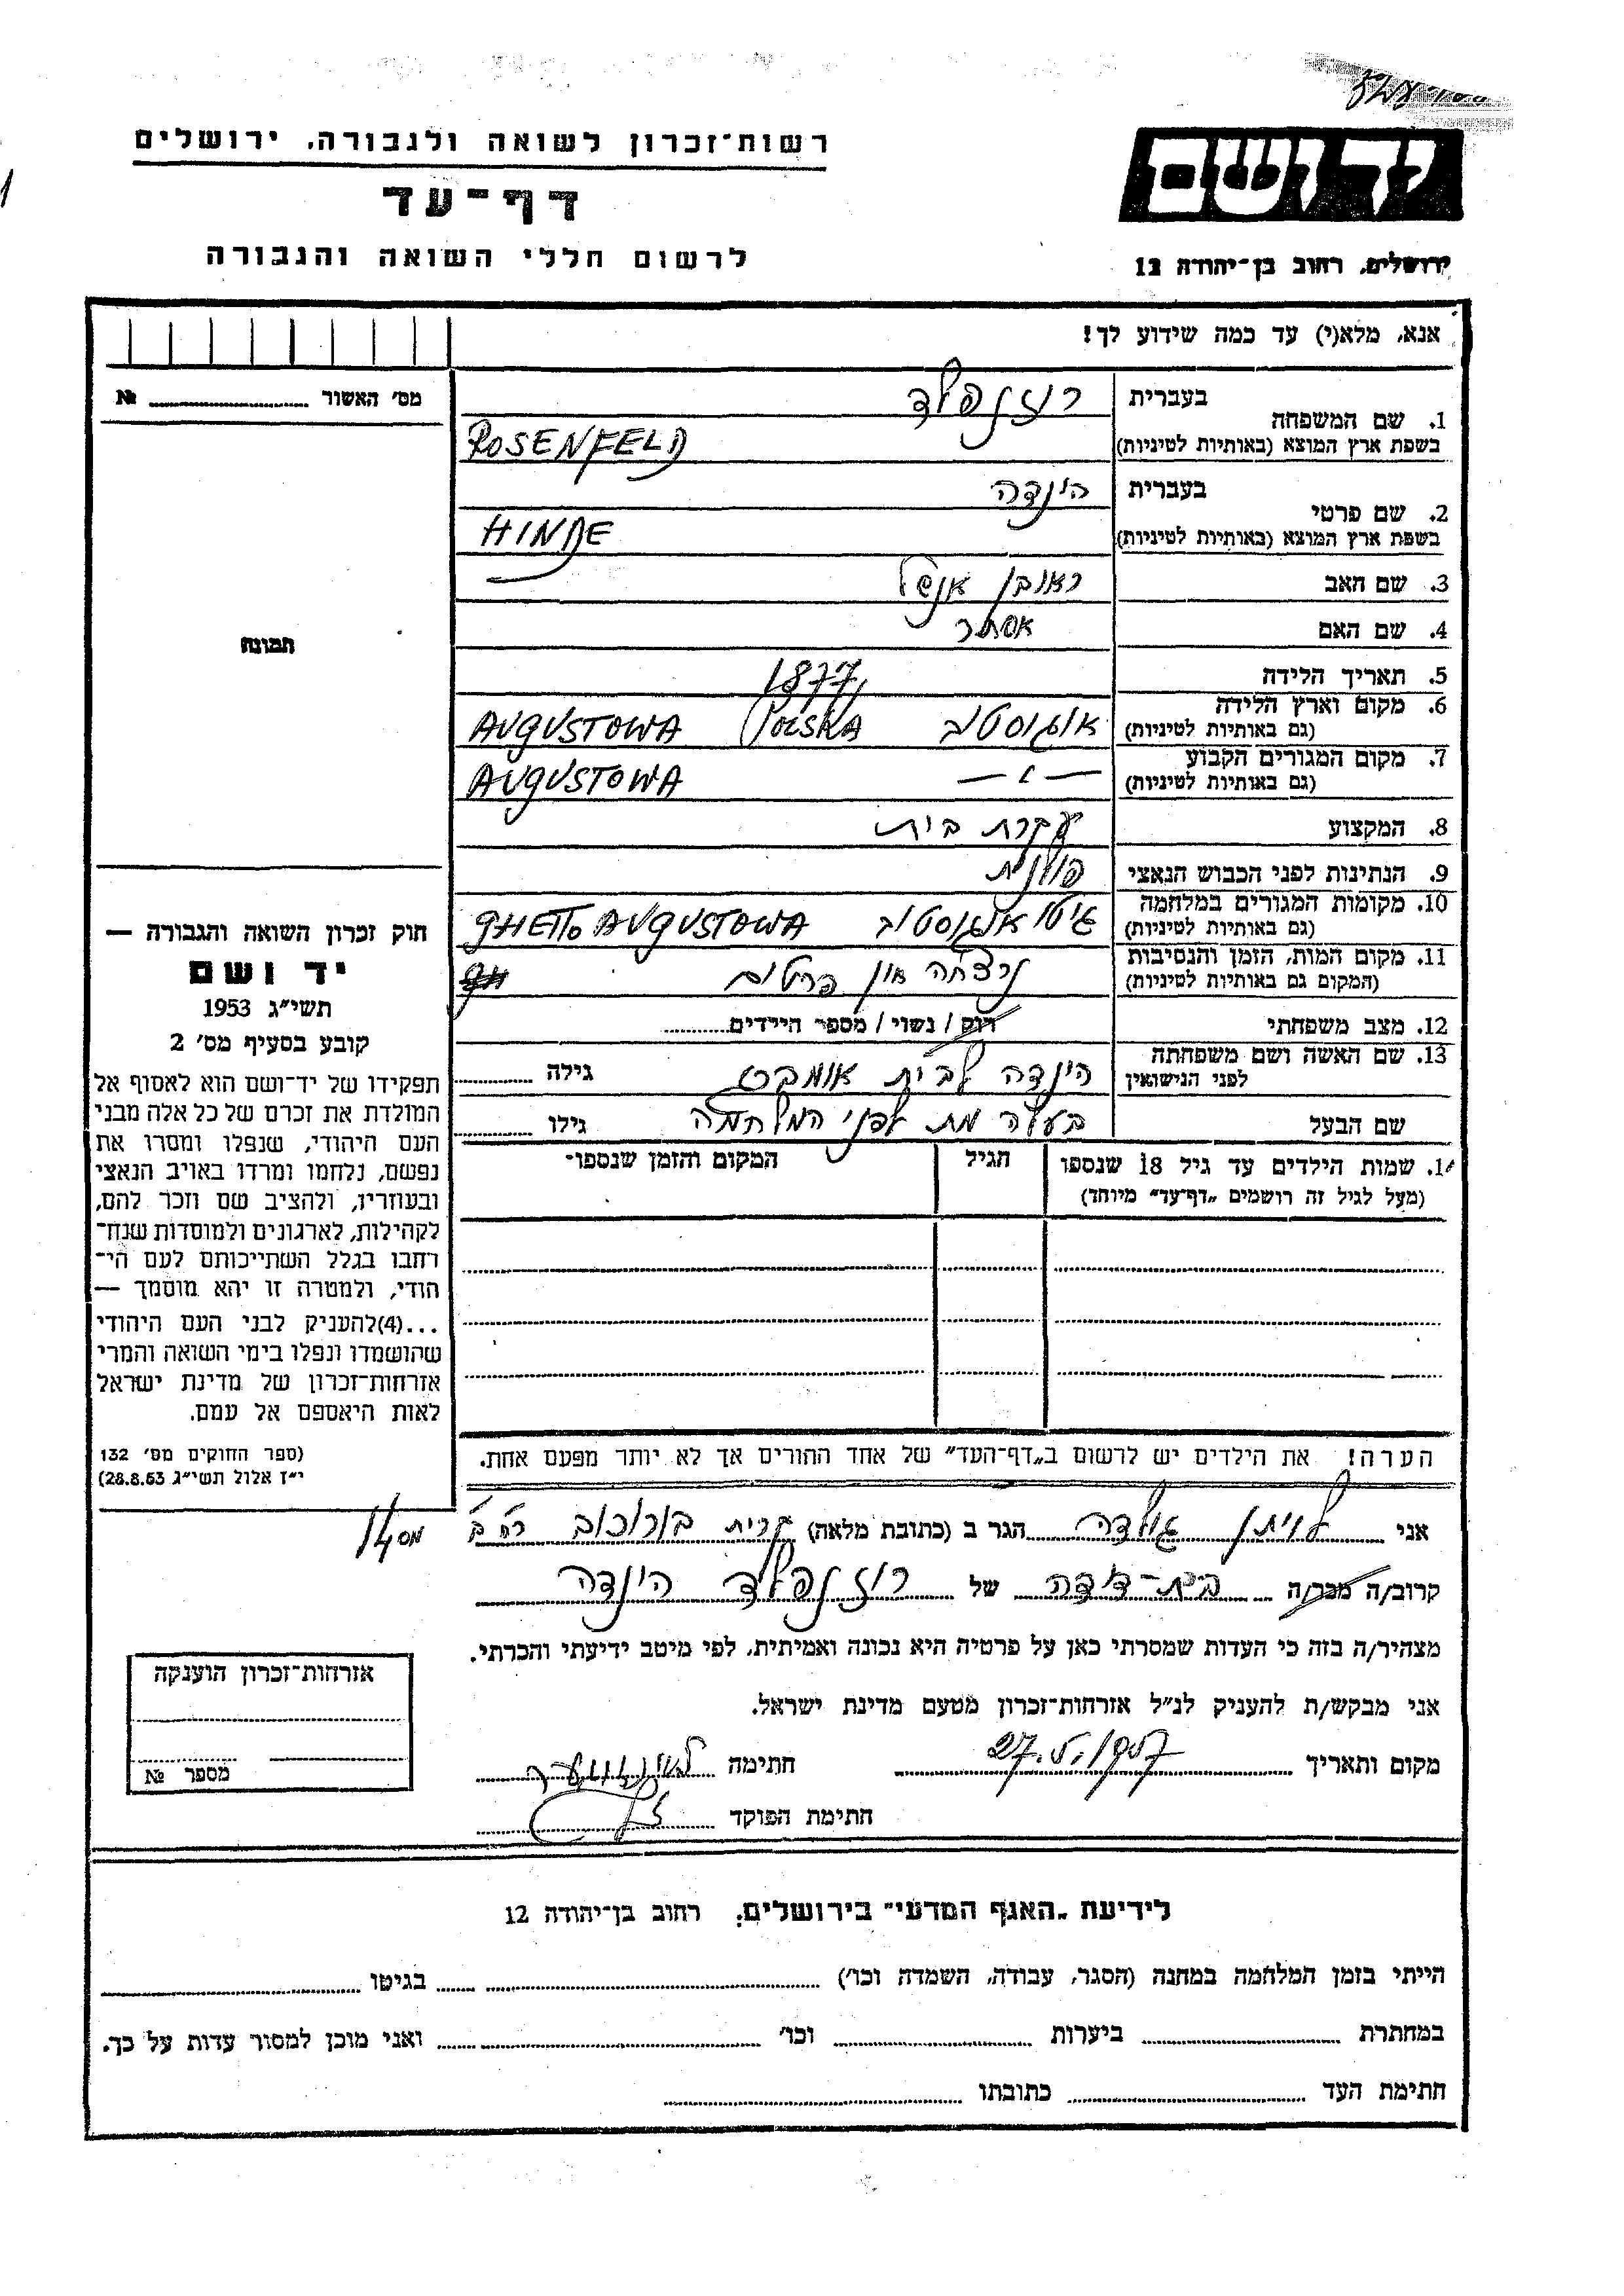 רשות־זכרון לשואה ולגבורה, ירושלים
דף־עד
לרשום חללי השואה והגבורה
יד ושם
ירושלים, רחוב בן־יהודה 12
אנא, מלא(י) עד כמה שידוע לך!
מס' האשור № 
תמונה
1. שם המשפחה בעברית רוזנפלד
בשפת ארץ המוצא (באותיות לטיניות) ROSENFELD
2. שם פרטי בעברית הינדה
בשפת ארץ המוצא (באותיות לטיניות) HINDE
3. שם האב ראובן אנשל
4. שם האם אסתר
5. תאריך הלידה 1877
6. מקום וארץ הלידה אוגוסטוב POLSKA AUGUSTOWA
(גם באותיות לטיניות)
7. מקום המגורים הקבוע — " — AUGUSTOWA
(גם באותיות לטיניות)
8. המקצוע עקרת בית
9. הנתינות לפני הכבוש הנאצי פולנית
10. מקומות המגורים במלחמה גיטו אוגוסטוב GHETTO AUGUSTOWA
(גם באותיות לטיניות)
11. מקום המות, הזמן והנסיבות נרצחה אין פרטים
(המקום גם באותיות לטיניות)
12. מצב משפחתי רוק / נשוי / מספר הילדים
13. שם האשה ושם משפחתה הינדה לבית גילה
לפני הנישואין
שם הבעל בעלה מת לפני המלחמה גילו
14. שמות הילדים עד גיל 18 שנספו הגיל המקום והזמן שנספו־
(מעל לגיל זה רושמים „דף־עד" מיוחד)
חוק זכרון השואה והגבורה —
יד ושם
תשי"ג 1953
קובע בסעיף מס' 2
תפקידו של יד־ושם הוא לאסוף אל
המולדת את זכרם של כל אלה מבני
העם היהודי, שנפלו ומסרו את
נפשם, נלחמו ומרדו באויב הנאצי
ובעוזריו, ולהציב שם וזכר להם,
לקהילות, לארגונים ולמוסדות שנח־
רחבו בגלל השתייכותם לעם הי־
הודי, ולמטרה זו יהא מוסמך —
...(4)להעניק לבני העם היהודי
שהושמדו ונפלו בימי השואה והמרי
אזרחות־זכרון של מדינת ישראל
לאות היאספם אל עמם.
(ספר החוקים מס' 132
י"ז אלול תשי"ג 28.8.53)
הערה! את הילדים יש לרשום ב„דף־העד" של אחד ההורים אך לא יותר מפעם אחת.
אני לויתן גולדה הגר ב (כתובת מלאה) קרית בורוכוב ר"ב
קרוב/ה מכר/ה בת־דודה של רוזנפלד הינדה
מצהיר/ה בזה כי העדות שמסרתי כאן על פרטיה היא נכונה ואמיתית, לפי מיטב ידיעתי והכרתי.
אני מבקש/ת להעניק לנ"ל אזרחות־זכרון מטעם מדינת ישראל.
מקום ותאריך 27.V.1957 חתימה
חתימת הפוקד
אזרחות־זכרון הוענקה
מספר №
לידיעת „האגף המדעי" בירושלים, רחוב בן־יהודה 12
הייתי בזמן המלחמה במחנה (הסגר, עבודה, השמדה וכו') בגיטו
במחתרת ביערות וכו' ואני מוכן למסור עדות על כך.
חתימת העד כתובתו